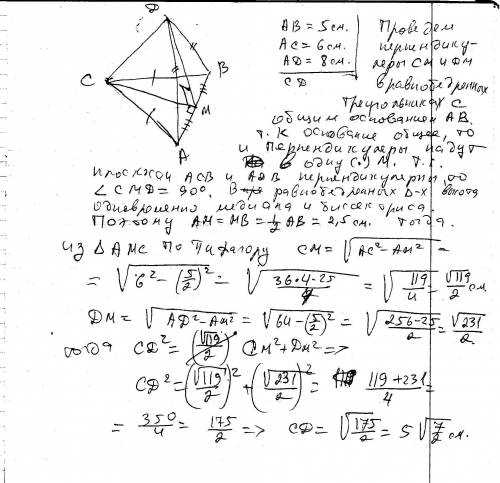 D
C
B
M
A
AB = 5 см.
AC = 6 см.
AD = 8 см.
CD
Проведем
перпендику-
леры CM и DM
в равнобедренных
треугольниках с
общим основанием AB.
Т. К основание общее, то
и перпендикуляры падут
в одну (.) M. Т. к.
плоскости ACB и ADB перпендикулярны, то
∠CMD = 90°. В равнобедренных Δ-х высота
одновременно медиана и биссектриса.
Поэтому AM = MB = 1/2 AB = 2,5 см. Тогда.
из ΔAMC по Пифагору CM = √(AC² - AM²) =
= √(6² - (5/2)²) = √((36·4-25)/4) = √(119/4) = √119/2 см
DM = √(AD² - AM²) = √(64 - (5/2)²) = √((256-25)/2) = √231/2
тогда CD² = (√119/2) CM² + DM² =>
CD² = (√119/2)² + (√231/2)² = (119+231)/4 =
= 350/4 = 175/2 => CD = √(175/2) = 5√(7/2) см.